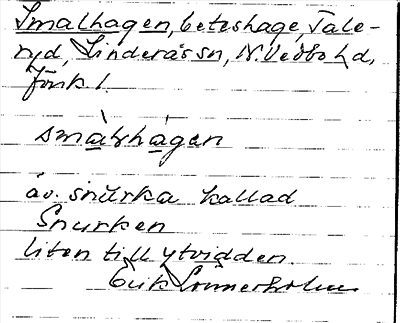 Smalhagen, beteshage, Tale-
ryd, Linderås sn, N. Vedbo hd,
Jönk l.
smàɫhàgen
äv. snurka kallad
Snurken
liten till ytvidden.
Erik Lönnerholm